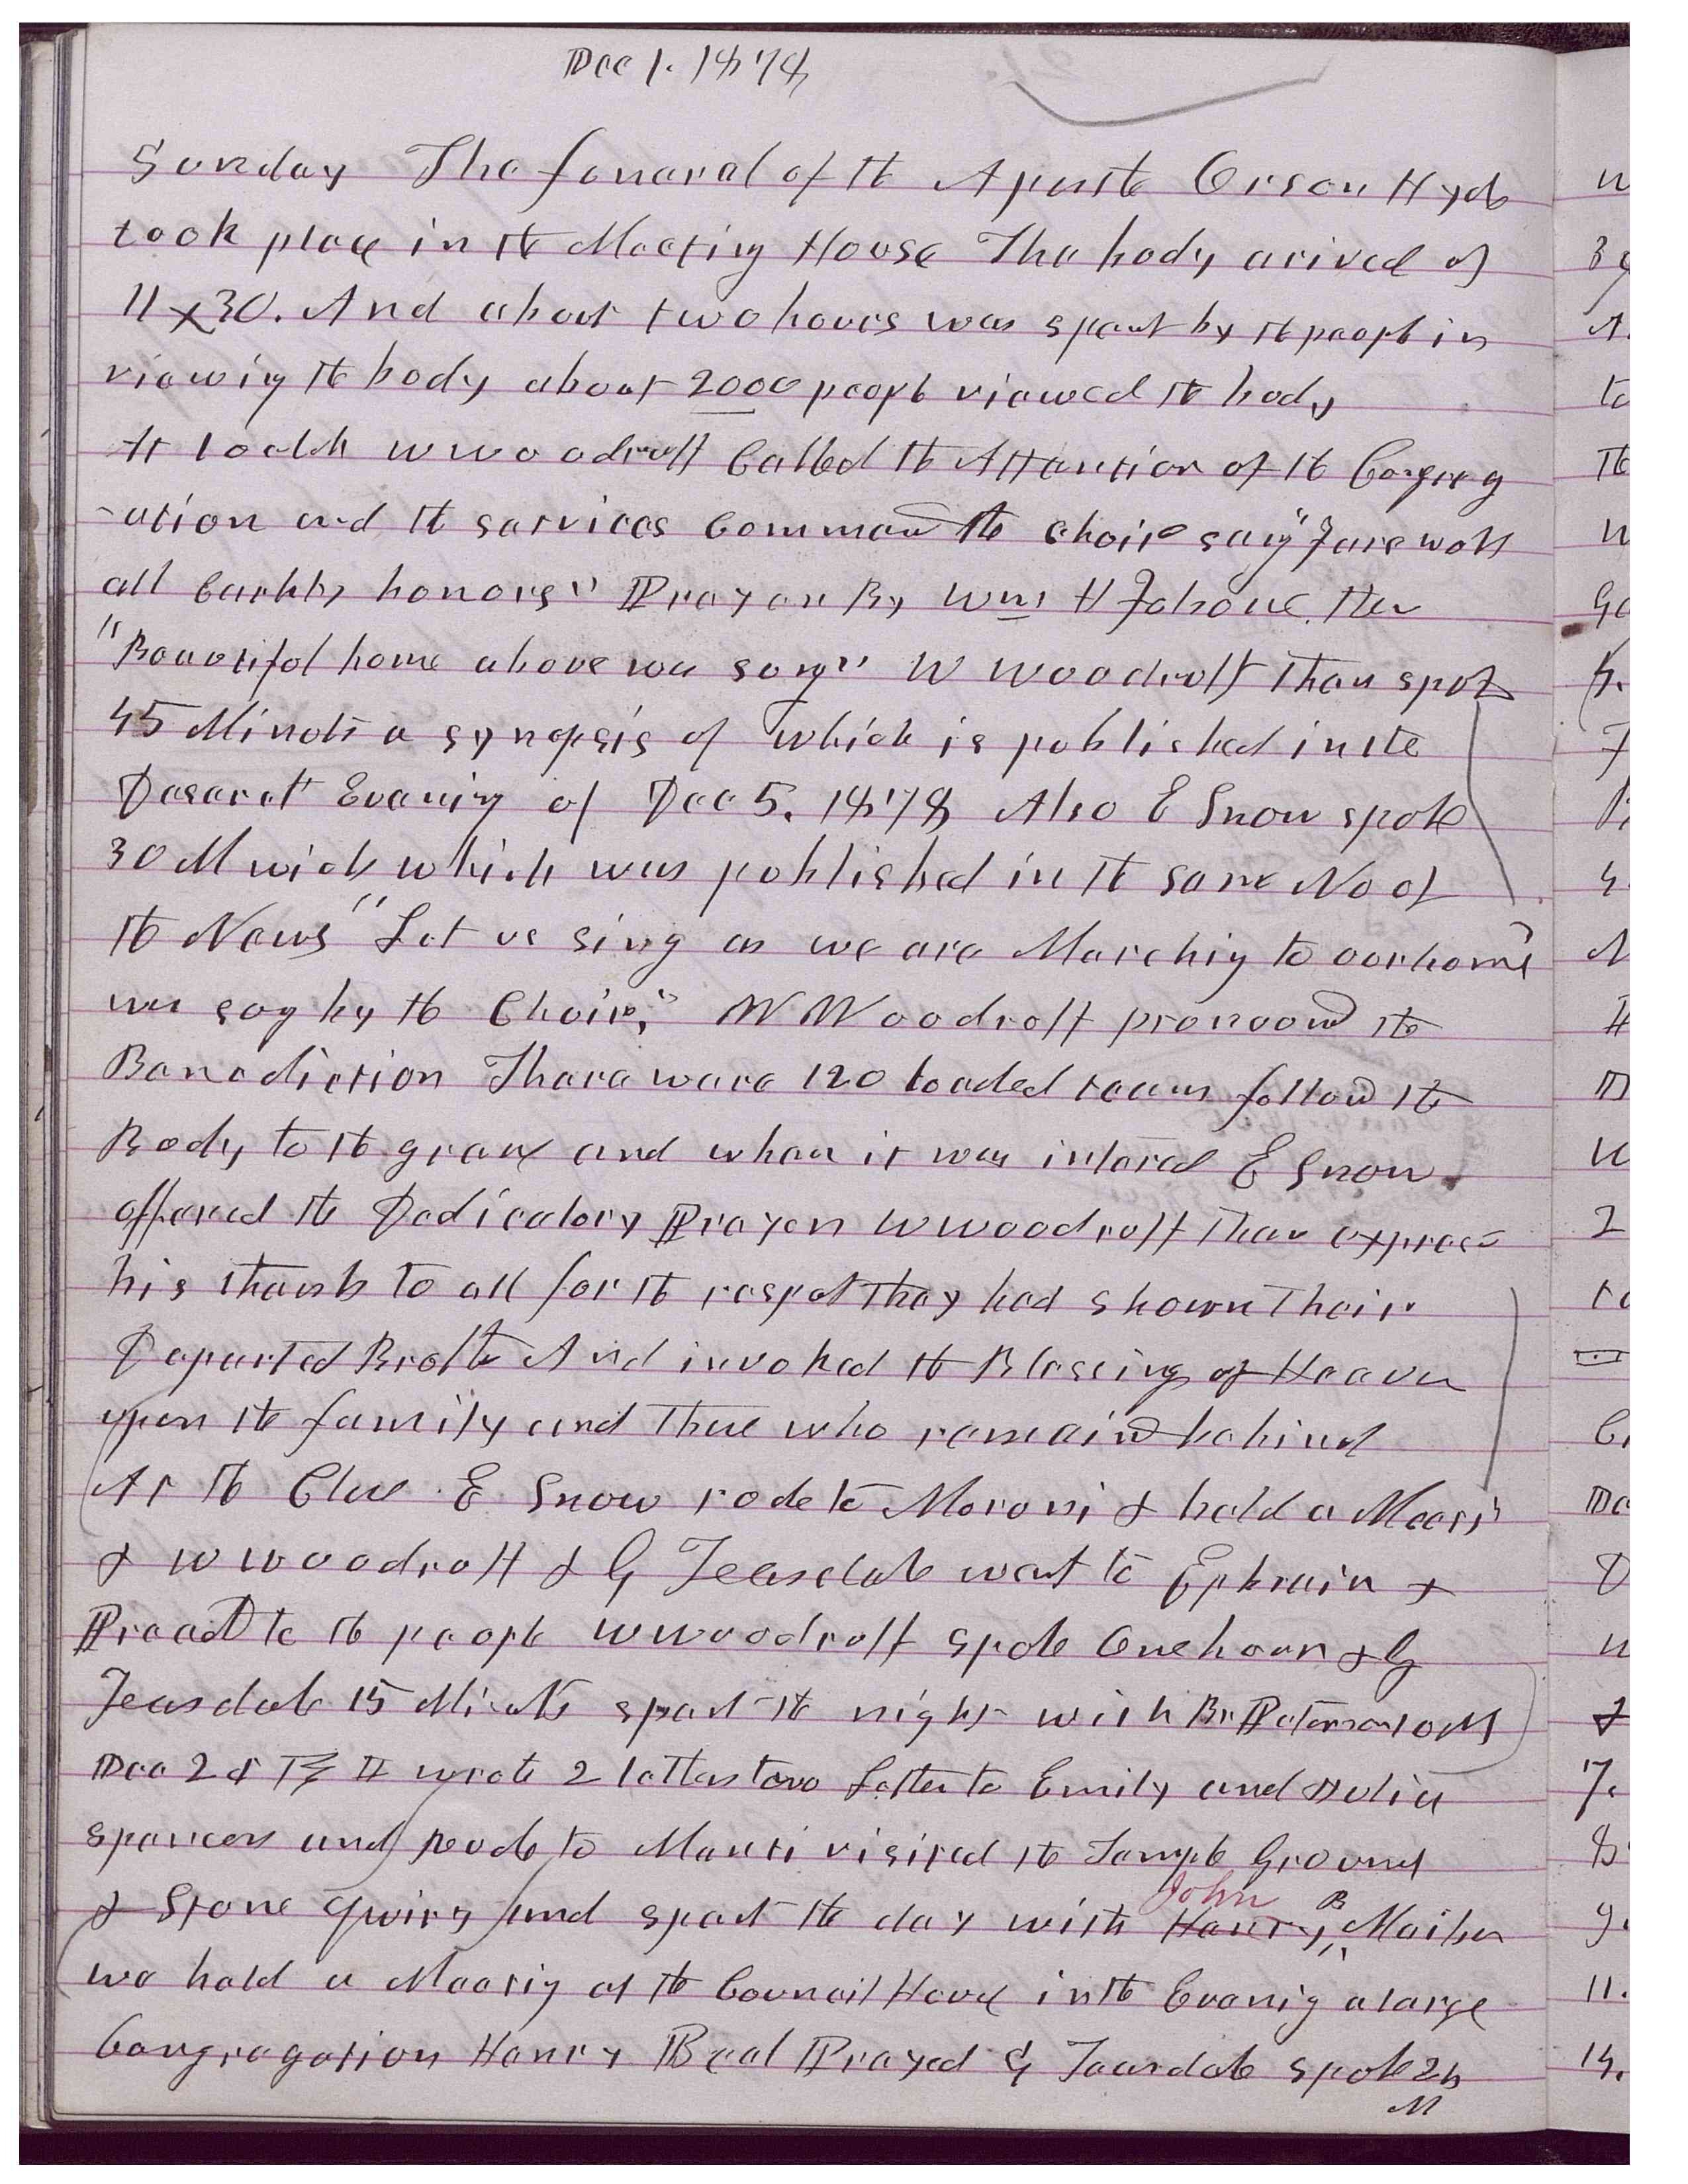 Dec 1. 1878
Sunday The funeral of the Apostle Orson Hyde
took place in the Meeting House The body arived at
11x30. And about two hours was spent by the people in
viewing the body about 2000 people viewed the body
At 1 oclok W Woodruff Called the Attention of the Congreg
-ation and the services Commenced the choir sung "Farewell
all Earthly honors" Prayer By Wm H Folsome. then
"Beautiful home above was sung" W Woodruff then spoke
45 Minuts a synopsis of which is published in the
Deseret Evening of Dec 5. 1878 Also E Snow spoke
30 M which was published in the same No of
the News "Let us sing as we are Marching to our home"
was sung by the Choir," W Woodruff pronounced the
Benediction There ware 120 loaded teams followed the
Body to the grave and when it was intered E Snow
offered the Dedicatory Prayer W Woodruff then expressed
his thanks to all for the respect they had shown their
Departed Brother And invoked the Blessing of Heaven
upon the family and those who remained behind
At the Close E Snow rode to Moroni & held a Meeting
& W Woodruff & G Teasdale went to Ephraim &
Preached to the people W Woodruff spoke One hour & G
Teasdale 15 Minuts spent the night with Br Peterson 10 M
Dec 2d I wrote 2 letters to Emily and Julia
Spencer and rode to Manti visited the Temple Ground
& Stone quiry and spent the day with Henry John B Maiben
we held a Meeting at the Council House in the Evening a large
Congregation Henry Beal Prayed G Teasdale spoke 25
M